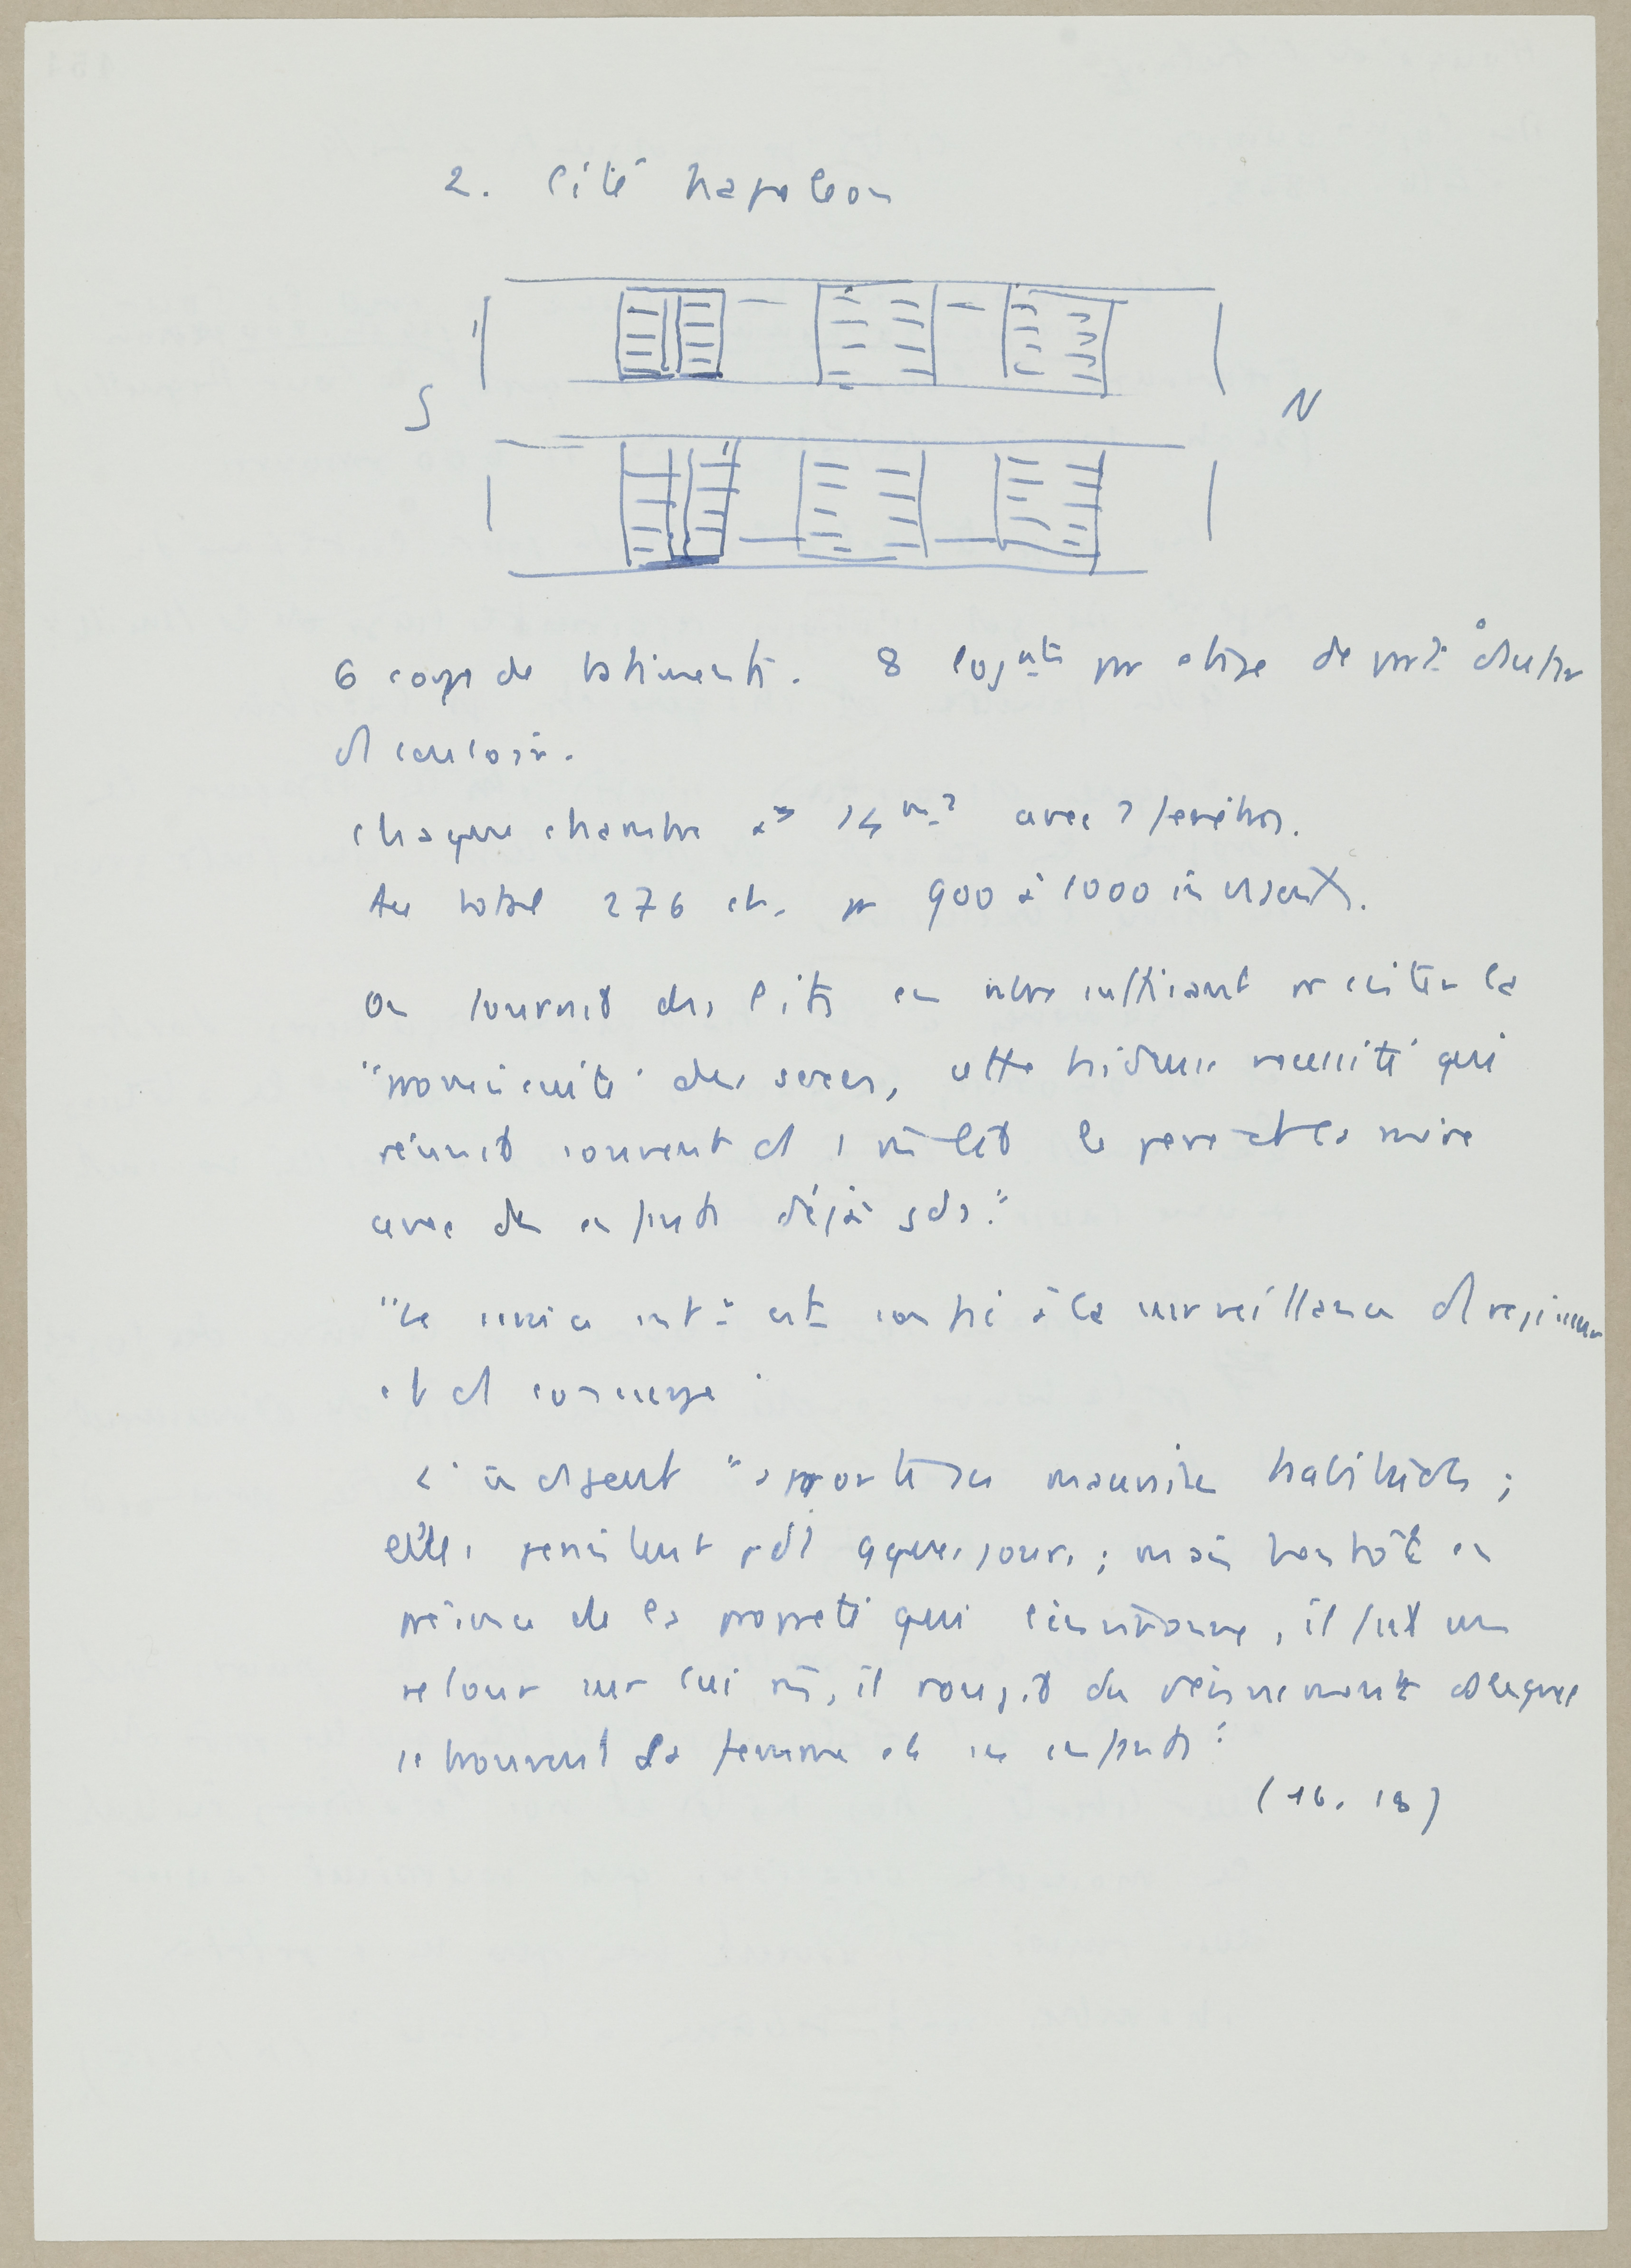 2. Cité Napoleon
S N
6 corps de batiments. 8 logmts par etage de part et d'autre
du couloir.
Chaque chambre a 14 m2 avec 2 fenêtres.
Au total 276 ch. pr 900 à 1000 indigents.
On fournit des lits en nbre suffisant pr éviter la
"promiscuité des sexes, cette hideuse nécessité qui
réunit souvent ds 1 m̄ lit le père et la mère
avec des enfants déjà gds."
"Le service intr est confié à la surveillance du régisseur
et du concierge"
L'indigent "apporte ses mauvaises habitudes ;
elles persistent pdt qques jours ; mais bientôt en
présence de la propreté qui l'environne, il fait un
retour sur lui m̄, il rougit du dénuement ds lequel
se trouvent sa femme et ses enfants"
(16. 18)